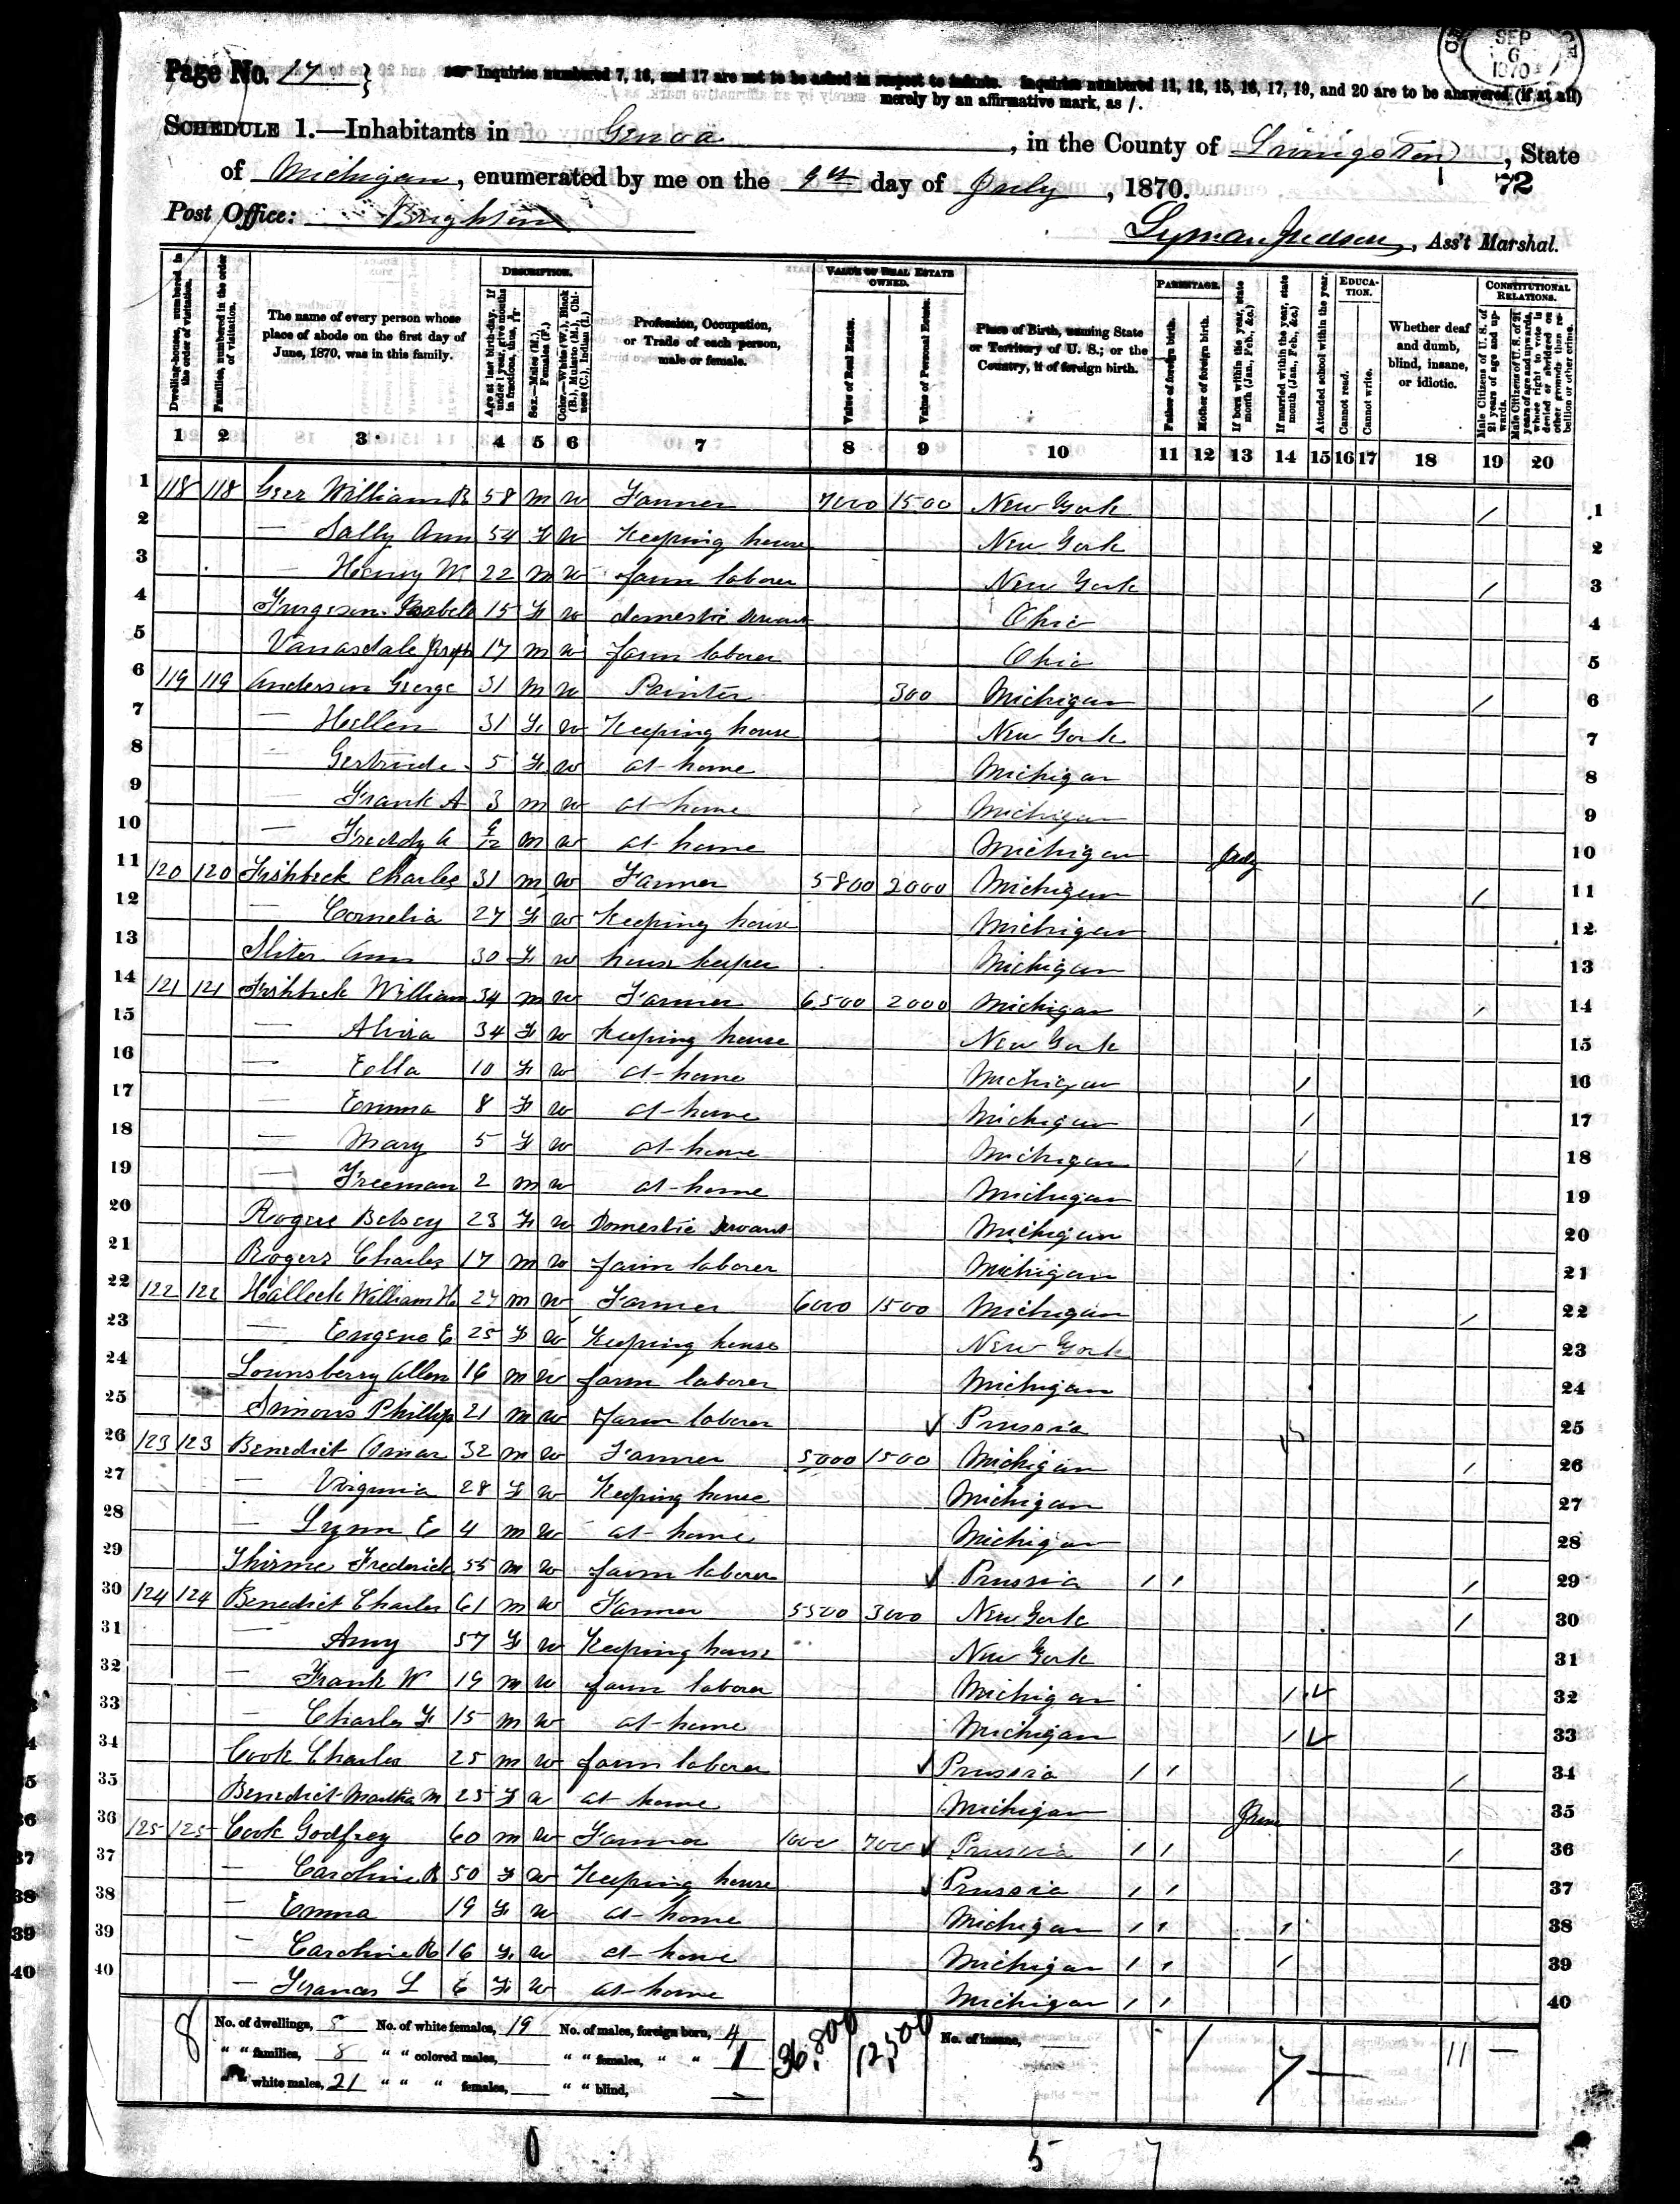 Page No. 17
Inquiries numbered 7, 16, and 17 are not to be asked in respect to infants. Inquiries numbered 11, 12, 15, 16, 17, 19, and 20 are to be answered (if at all)
merely by an affirmative mark, as /.
SEP 6 1870
SCHEDULE 1.—Inhabitants in Genoa, in the County of Livingston, State
of Michigan, enumerated by me on the 9th day of July, 1870.
72
Post Office: Brighton
Lyman Judson, Ass't Marshal.
Dwelling-houses, numbered in the order of visitation.
Families, numbered in the order of visitation.
The name of every person whose place of abode on the first day of June, 1870, was in this family.
DESCRIPTION.
Age at last birth-day. If under 1 year, give months in fractions, thus,
Sex.—Males (M.), Females (F.)
Color.—White (W.), Black (B.), Mulatto (M.), Chinese (C.), Indian (I.)
Profession, Occupation, or Trade of each person, male or female.
VALUE OF REAL ESTATE OWNED.
Value of Real Estate.
Value of Personal Estate.
Place of Birth, naming State or Territory of U. S.; or the Country, if of foreign birth.
PARENTAGE.
Father of foreign birth.
Mother of foreign birth.
If born within the year, state month (Jan., Feb., &c.)
If married within the year, state month (Jan., Feb., &c.)
Attended school within the year.
EDUCATION.
Cannot read.
Cannot write.
Whether deaf and dumb, blind, insane, or idiotic.
CONSTITUTIONAL RELATIONS.
Male Citizens of U. S. of 21 years of age and upwards.
Male Citizens of U. S. of 21 years of age and upwards, whose right to vote is denied or abridged on other grounds than rebellion or other crime.
1 2 3 4 5 6 7 8 9 10 11 12 13 14 15 16 17 18 19 20
1 118 118 Geer William R 58 m w Farmer 7000 1500 New York / 1
2 — Sally Ann 54 F w Keeping house New York 2
3 — Henry W 22 m w farm laborer New York / 3
4 Furgeson Isabel 15 F w domestic servant Ohio 4
5 Vanasdale Joseph 17 m w farm laborer Ohio 5
6 119 119 Anderson George 31 m w Painter 300 Michigan / 6
7 — Hellen 31 F w Keeping house New York 7
8 — Gertrude 5 F w at home Michigan 8
9 — Frank A 3 m w at home Michigan 9
10 — Freddy A m w at home Michigan July 10
11 120 120 Fishbeck Charles 31 m w Farmer 5800 2000 Michigan / 11
12 — Cornelia 27 F w Keeping house Michigan 12
13 Sliter Ann 30 F w house keeper Michigan 13
14 121 121 Fishbeck William 34 m w Farmer 6500 2000 Michigan / 14
15 — Alvira 34 F w Keeping house New York 15
16 — Eella 10 F w at home Michigan / 16
17 — Emma 8 F w at home Michigan / 17
18 — Mary 5 F w at home Michigan / 18
19 — Freeman 2 m w at home Michigan 19
20 Rogers Betsey 23 F w Domestic servant Michigan 20
21 Rogers Charles 17 m w farm laborer Michigan 21
22 122 122 Halleck William H 27 m w Farmer 6000 1500 Michigan / 22
23 — Eugene E 25 F w Keeping house New York 23
24 Lounsberry Allen 16 m w farm laborer Michigan 24
25 Simons Phillip 21 m w farm laborer ✓ Prussia 25
26 123 123 Benedict Omar 32 m w Farmer 5000 1500 Michigan / 26
27 — Virginia 28 F w Keeping house Michigan 27
28 — Lynn E 4 m w at home Michigan 28
29 Thirme Frederick 55 m w farm laborer ✓ Prussia / / / 29
30 124 124 Benedict Charles 61 m w Farmer 5500 3000 New York / 30
31 — Amy 57 F w Keeping house New York 31
32 — Frank W 19 m w farm laborer Michigan / ✓ 32
33 — Charles F 15 m w at home Michigan / ✓ 33
34 Cook Charles 25 m w farm laborer ✓ Prussia / / / 34
35 Benedict Martha M 25 F w at home Michigan June 35
36 125 125 Cook Godfrey 60 m w Farmer 1000 700 ✓ Prussia / / / 36
37 — Caroline R 50 F w Keeping house ✓ Prussia / / 37
38 — Emma 19 F w at home Michigan / / / 38
39 — Caroline R 16 F w at home Michigan / / / 39
40 — Frances L 6 F w at home Michigan / / 40
8 No. of dwellings, 8 No. of white females, 19 No. of males, foreign born, 4 36,800 12,500 No. of insane,
" " families, 8 " " colored males, " " females, " " 1 / 7 — 11 —
" white males, 21 " " " females, " " blind, —
5 7